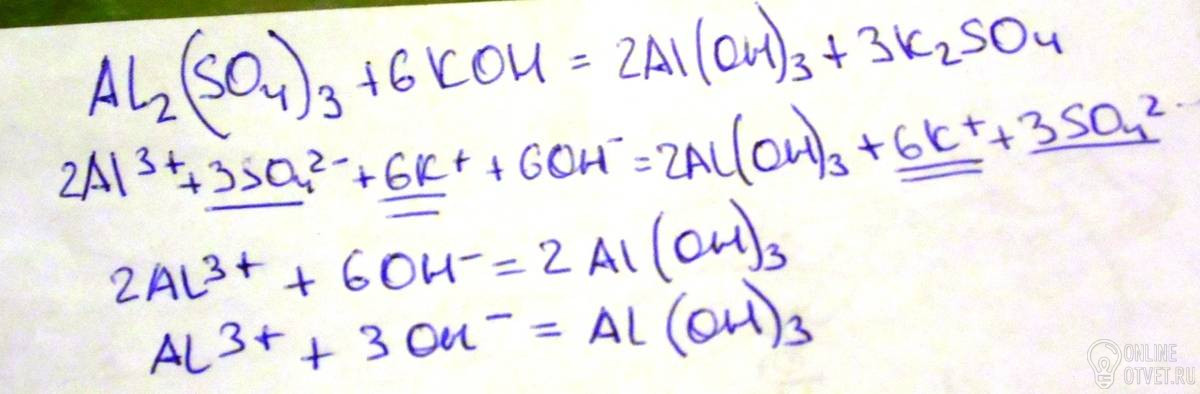 Al₂(SO₄)₃ + 6KOH = 2Al(OH)₃ + 3K₂SO₄
2Al³⁺ + 3SO₄²⁻ + 6K⁺ + 6OH⁻ = 2Al(OH)₃ + 6K⁺ + 3SO₄²⁻
2Al³⁺ + 6OH⁻ = 2Al(OH)₃
Al³⁺ + 3OH⁻ = Al(OH)₃
ONLINE
OTVET.RU